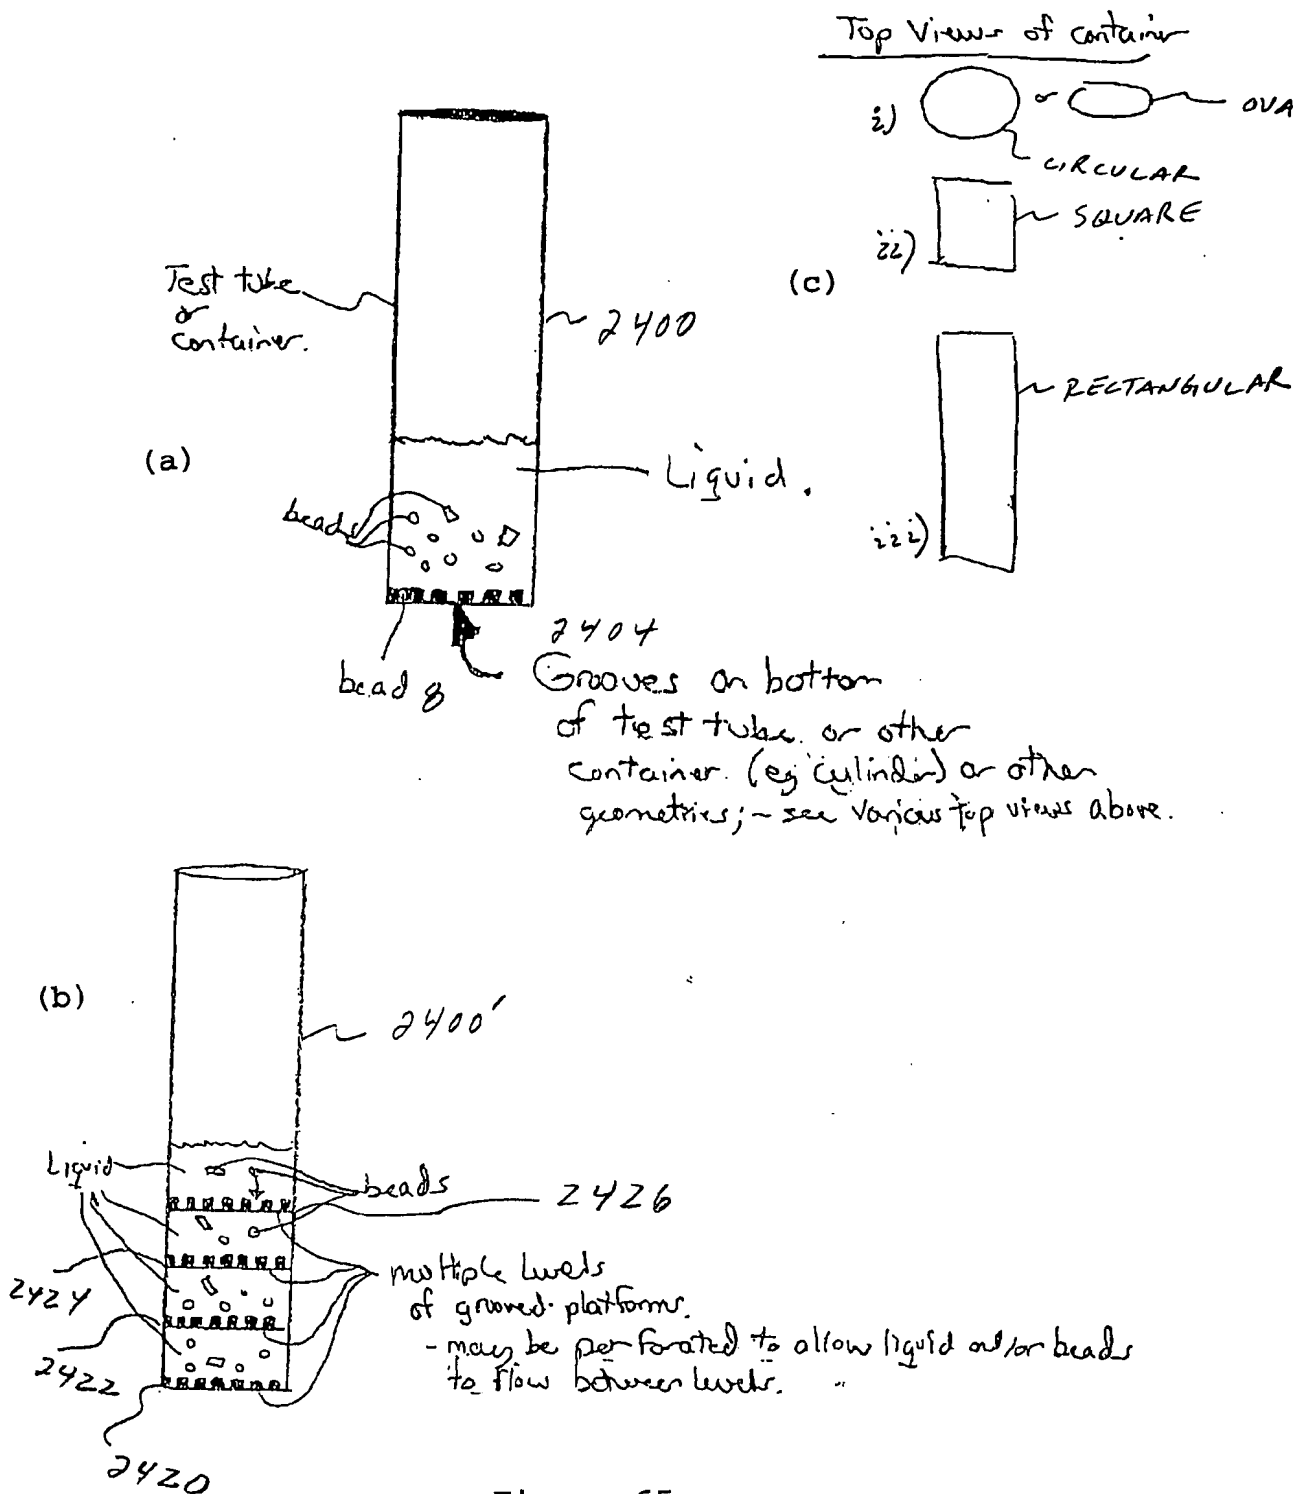 Top Views of container
i)
or
OVA
CIRCULAR
ii)
SQUARE
(c)
RECTANGULAR
iii)
Test tube
or
container.
2400
(a)
Liquid.
beads
bead 8
2404
Grooves on bottom
of test tube or other
container (eg cylinder) or other
geometries; - see various top views above.
(b)
2400'
Liquid
beads
2426
2424
multiple levels
of grooved platforms.
- may be perforated to allow liquid and/or beads
to flow between levels.
2422
2420